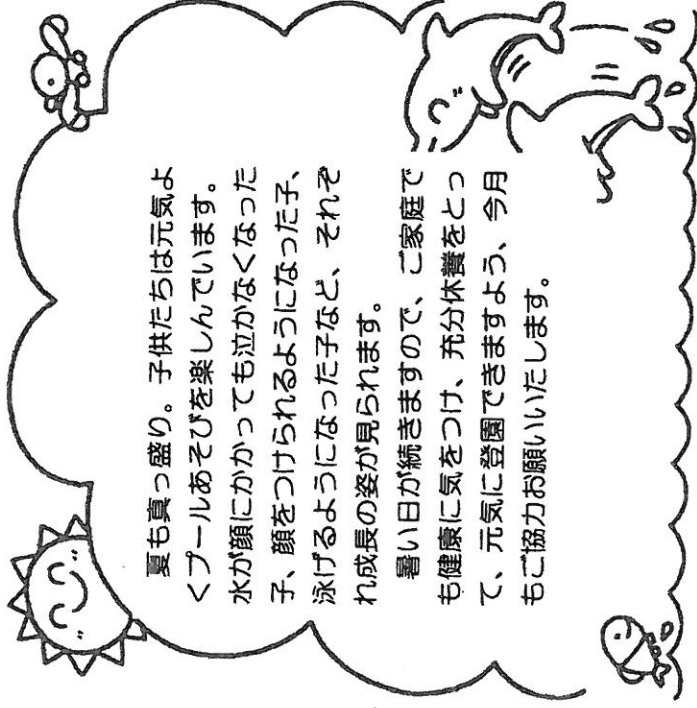 夏も真っ盛り。子供たちは元気よ
くプールあそびを楽しんでいます。
水が顔にかかっても泣かなくなった
子、顔をつけられるようになった子、
泳げるようになった子など、それぞ
れ成長の姿が見られます。
暑い日が続きますので、ご家庭で
も健康に気をつけ、充分休養をとっ
て、元気に登園できますよう、今月
もご協力お願いいたします。